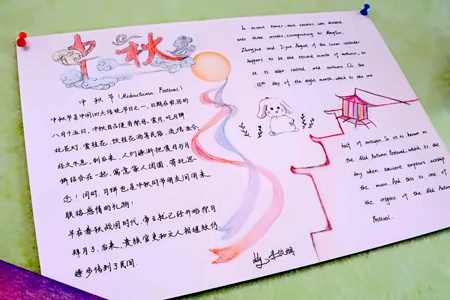 中秋
中秋节(Midautumn Festival)
中秋节是中国四大传统节日之一,日期在农历的
八月十五日,中秋自古便有祭月、赏月、吃月饼
玩花灯、赏桂花、饮桂花酒等民俗,流传至今
经久不息,到后来,人们逐渐把赏月与月
饼结合在一起,寓意家人团圆,寄托思
念!同时,月饼也是中秋时节朋友间用来
联络感情的礼物!
早在春秋战国时代,帝王就已经开始祭月
拜月了,后来,贵族官吏和文人相继效仿
逐步传到了民间.
In ancient times, each season was divided
into three months, corresponding to Mengqiu,
Zhongqiu and Jiqiu. August of the lunar calendar
happens to be the second month of autumn, so
it is also called mid autumn. On the
15th day of the eighth month, which is the
half of autumn, so it is known as
the Mid Autumn Festival, which is the
day when ancient emperors worship
the moon. And this is one of
the origins of the Mid Autumn
Festival.